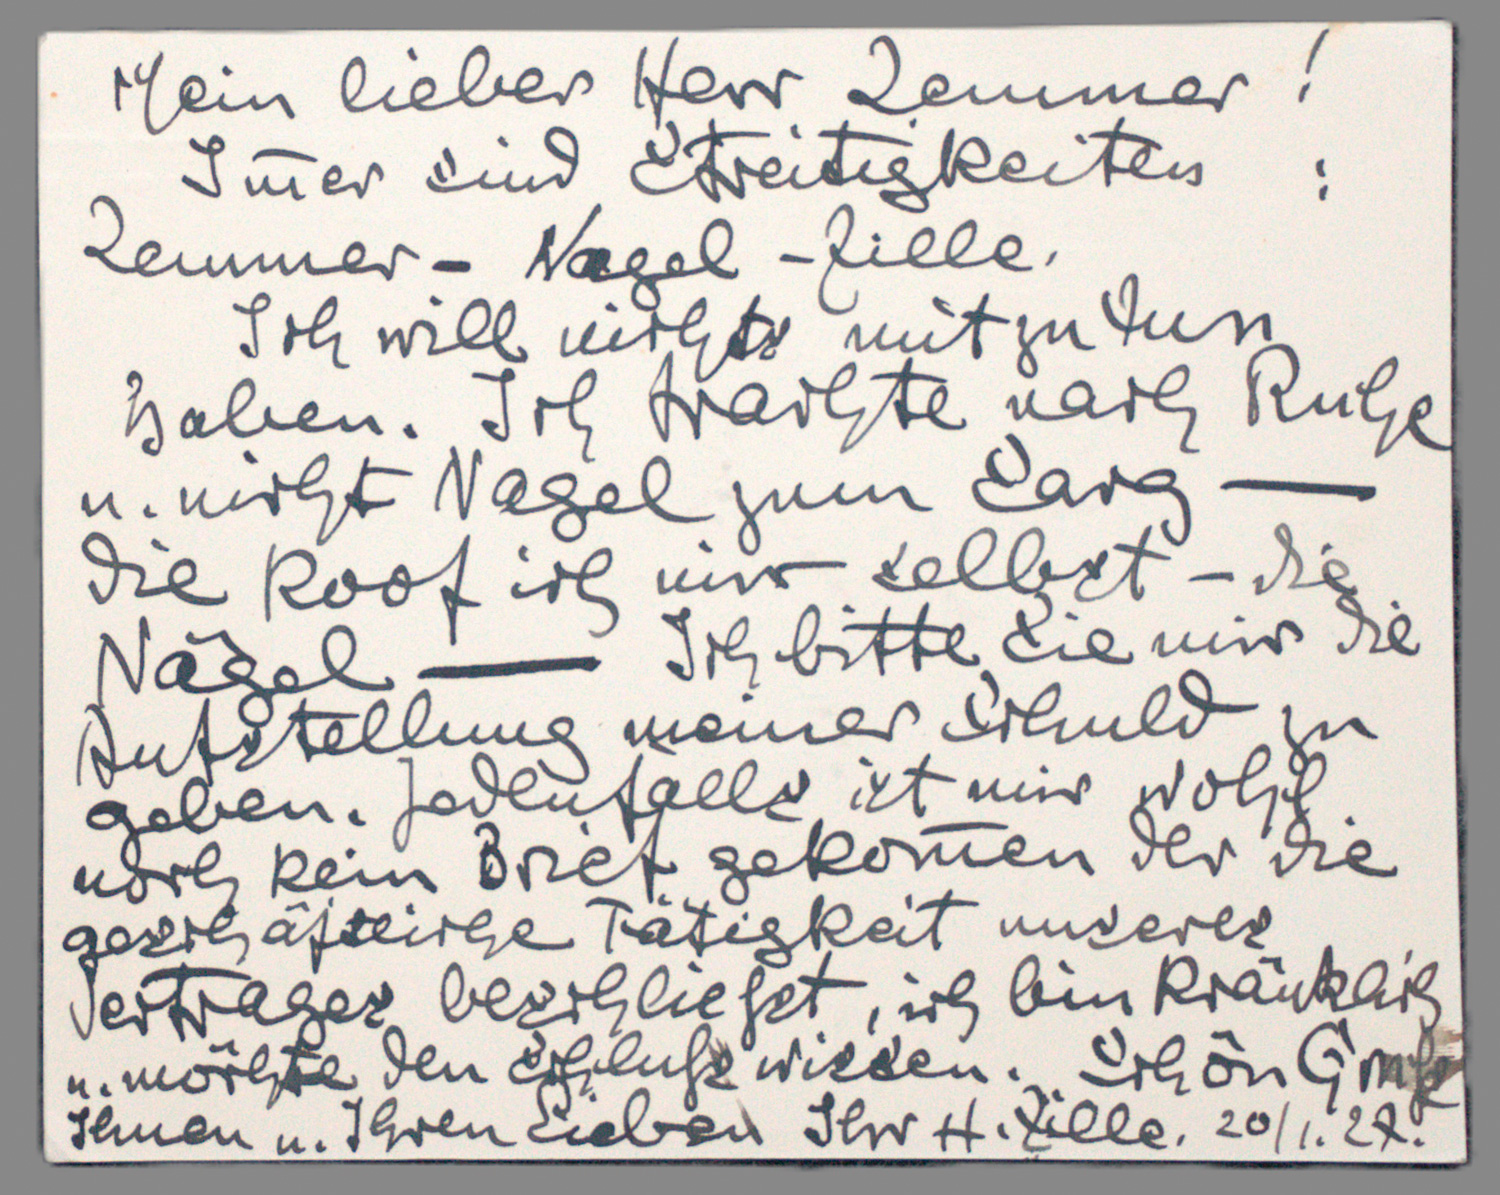 Mein lieber Herr Zemmer!
Im̅er sind Streitigkeiten :
Zemmer – Nagel – Zille.
Ich will nichts mit zu tun
haben. Ich trachte nach Ruhe
u. nicht Nagel zum Sarg —
die koof ich mir selbst – die
Nägel — Ich bitte Sie mir die
Aufstellung meiner Schuld zu
geben. Jedenfalls ist mir wohl
noch kein Brief gekom̅en der die
geschäftliche Tätigkeit unseres
Vertrages beschließt, ich bin kränklich
u. möchte den Schluß wissen. Schön Gruß
Ihnen u. Ihren Lieben Ihr H. Zille. 20/1. 27.